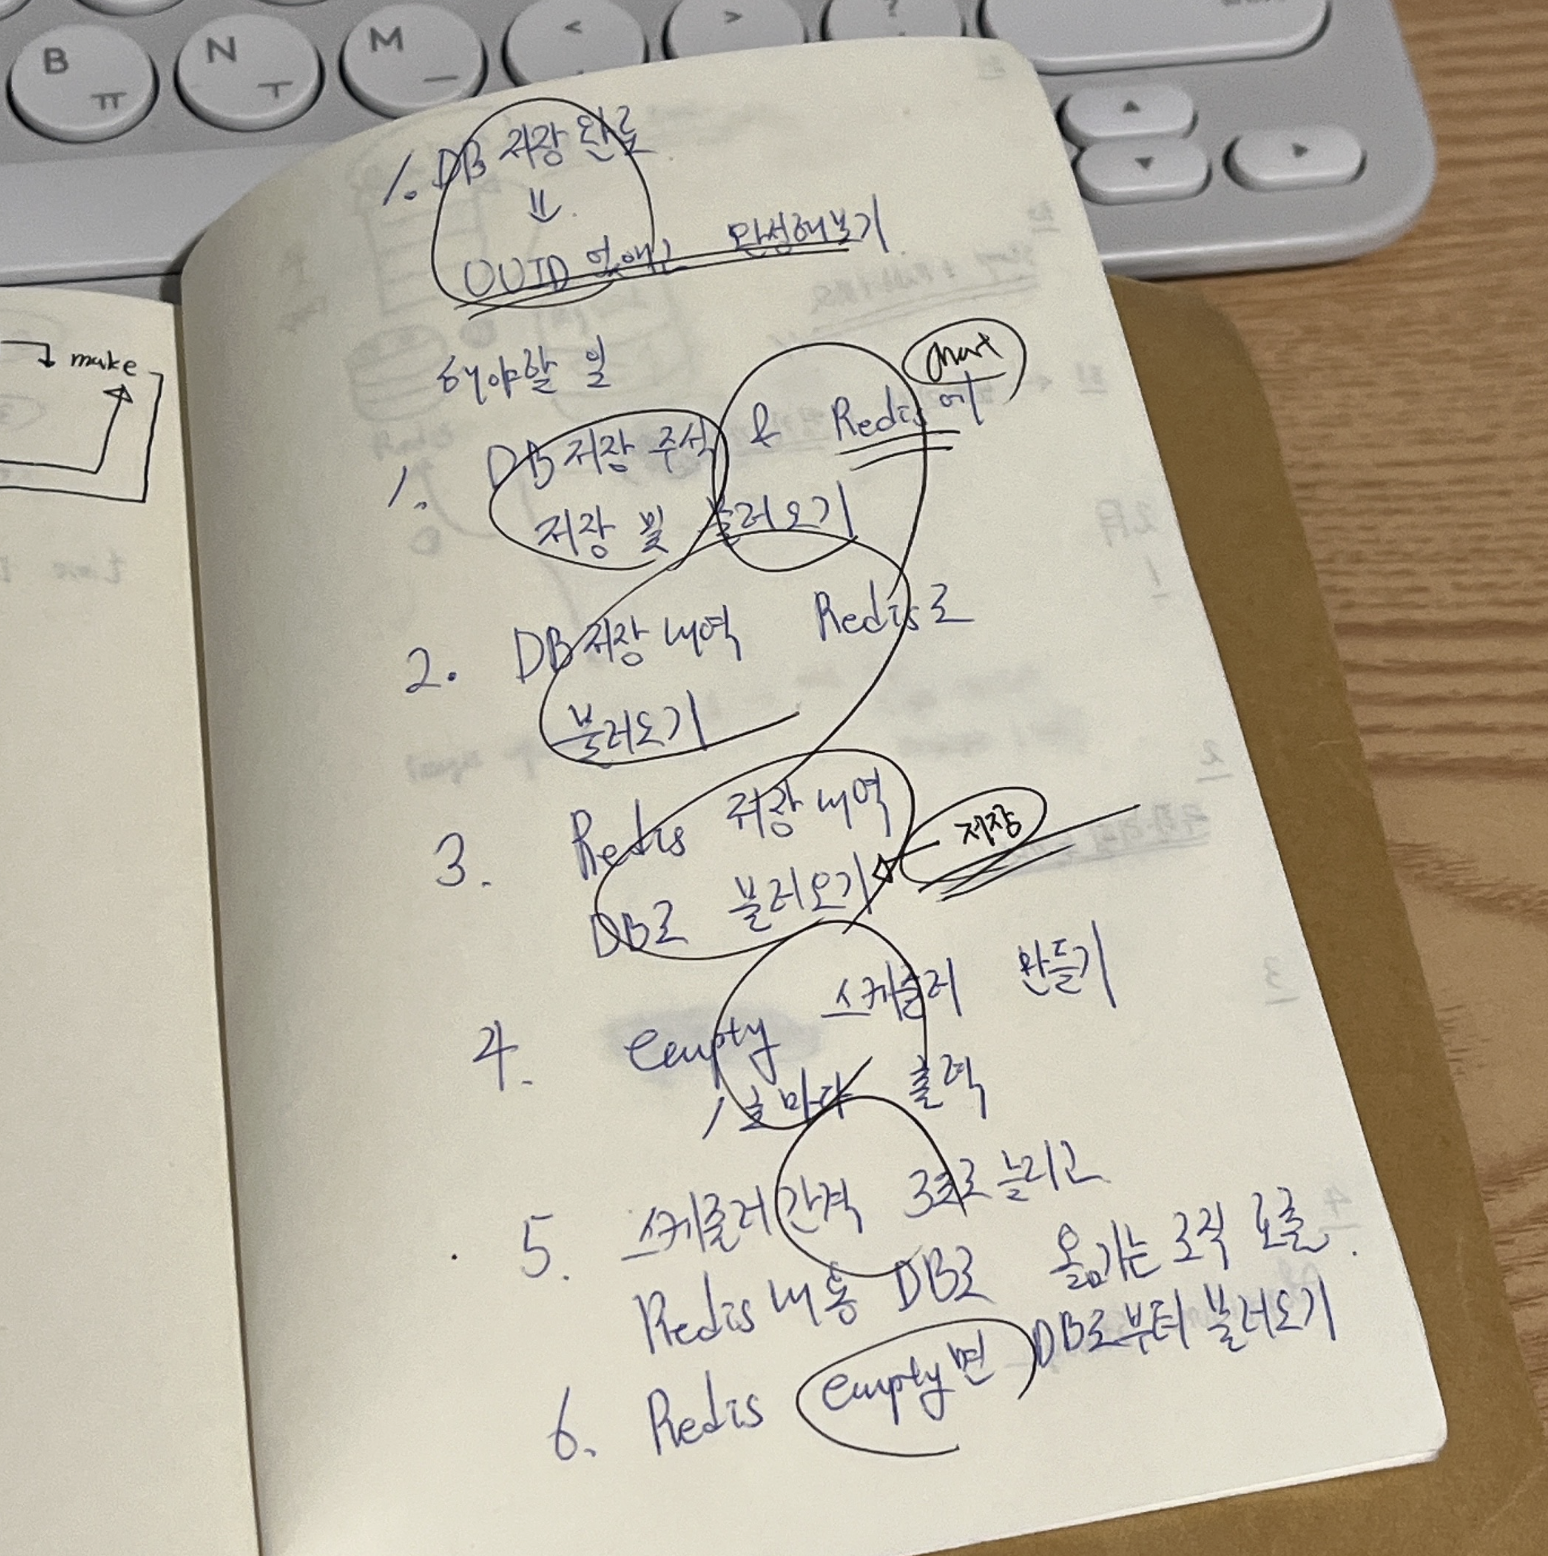 B ㅠ
N ㅜ
M ㅡ
<
>
?
make
1. DB 저장 완료
⇓
UUID 없애고 완성해보기
해야할 일
chart
1. DB 저장 주석 & Redis에
저장 및 불러오기
2. DB 저장 내역 Redis로
불러오기
3. Redis 저장 내역
저장
DB로 불러오기
4. empty 스케줄러 만들기
1초마다 출력
5. 스케줄러 간격 3초로 늘리고
Redis 내용 DB로 옮기는 로직 호출.
6. Redis empty면 DB로부터 불러오기